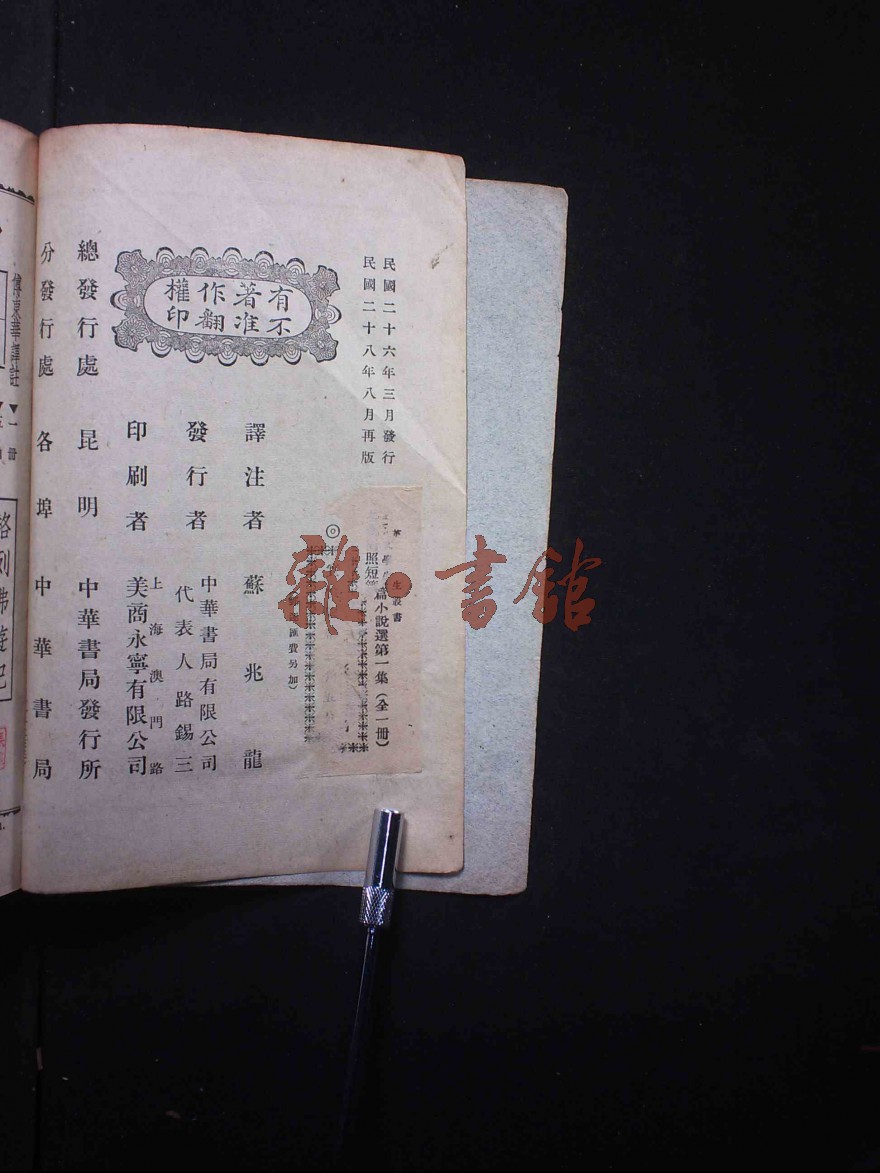 民國二十六年三月發行
民國二十八年八月再版
有著作權
不准翻印
叢書
照短篇小說選第一集(全一冊)
匯費另加)
譯注者 蘇兆龍
發行者 中華書局有限公司
代表人路錫三
印刷者 上海澳門路
美商永寧有限公司
總發行處 昆明 中華書局發行所
分發行處 各埠中華書局
傅東華譯註
一冊
格列佛遊記
雜·書館